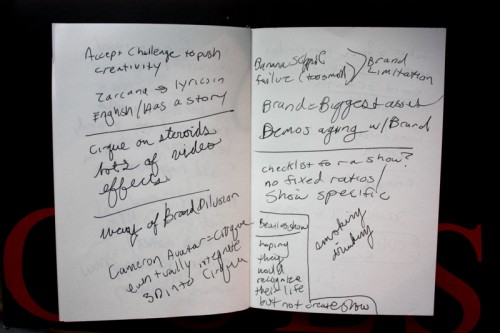 Accept Challenge to push
creativity
Zarcana → lyrics in
English/Has a story
Cirque on steroids
lots of video
effects
weary of Brand Dilusion
Cameron Avatar = Cirque
eventually integrate
3D into Cirque
Banana
failure (too small)
Brand
Limitation
Brand = Biggest asset
Demos aging w/ Brand
checklist for a show?
no fixed ratios/
Show specific
Beatles show
hoping
they
would
recognize
their life
but not create show
smoking
drinking